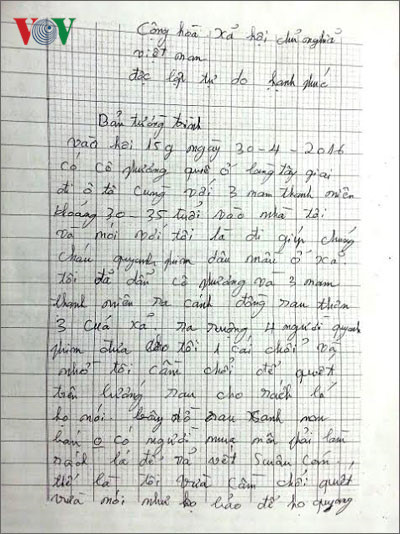 VOV
Cộng hoà xả hội chử nghiả
việt nam
độc lập tự do hạnh phúc
Bản tường trình
vào hồi 15g ngày 30-4-2016
có cô phương quê ở làng tây giai
đi ô tô cùng với 3 nam thanh niên
khoảng 30-35 tuổi vào nhà tôi
và nói với tôi là đi giúp chúng
cháu quyanh phim dâu mầu ở xả
tôi đả dẩn cô phương và 3 nam
thanh niên ra cánh đồng rau thôn
3 cuả xả ra ruộng 4 người quyanh
phim đưa cho tôi 1 cái chổi và
nhờ tôi cầm chổi để quét
trên luống rau cho rách lá
họ nói bây giờ rau xanh non
bán o có người mua nên phải làm
rách lá để vả vết sâu cắn
thế là tôi vừa cầm chổi quét
vừa nói như họ bảo để họ quyang